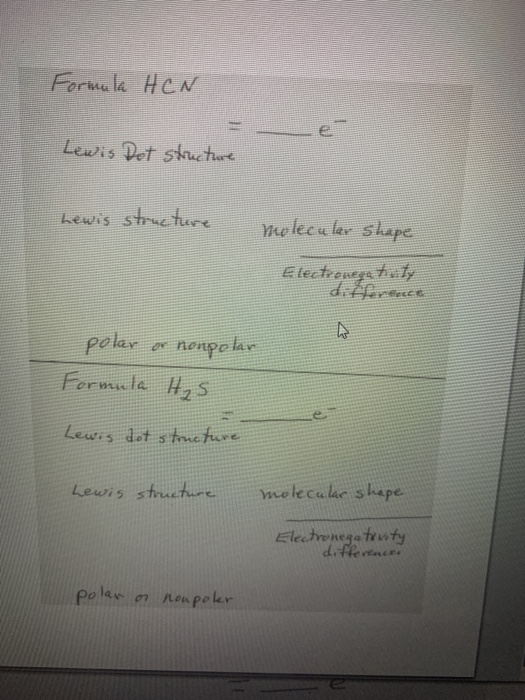 Formula HCN
= ___ e⁻
Lewis Dot structure
Lewis structure
molecular shape
Electronegativity
difference
polar or nonpolar
Formula H₂S
= ___ e⁻
Lewis dot structure
Lewis structure
molecular shape
Electronegativity
difference
polar or nonpolar
= ___ e